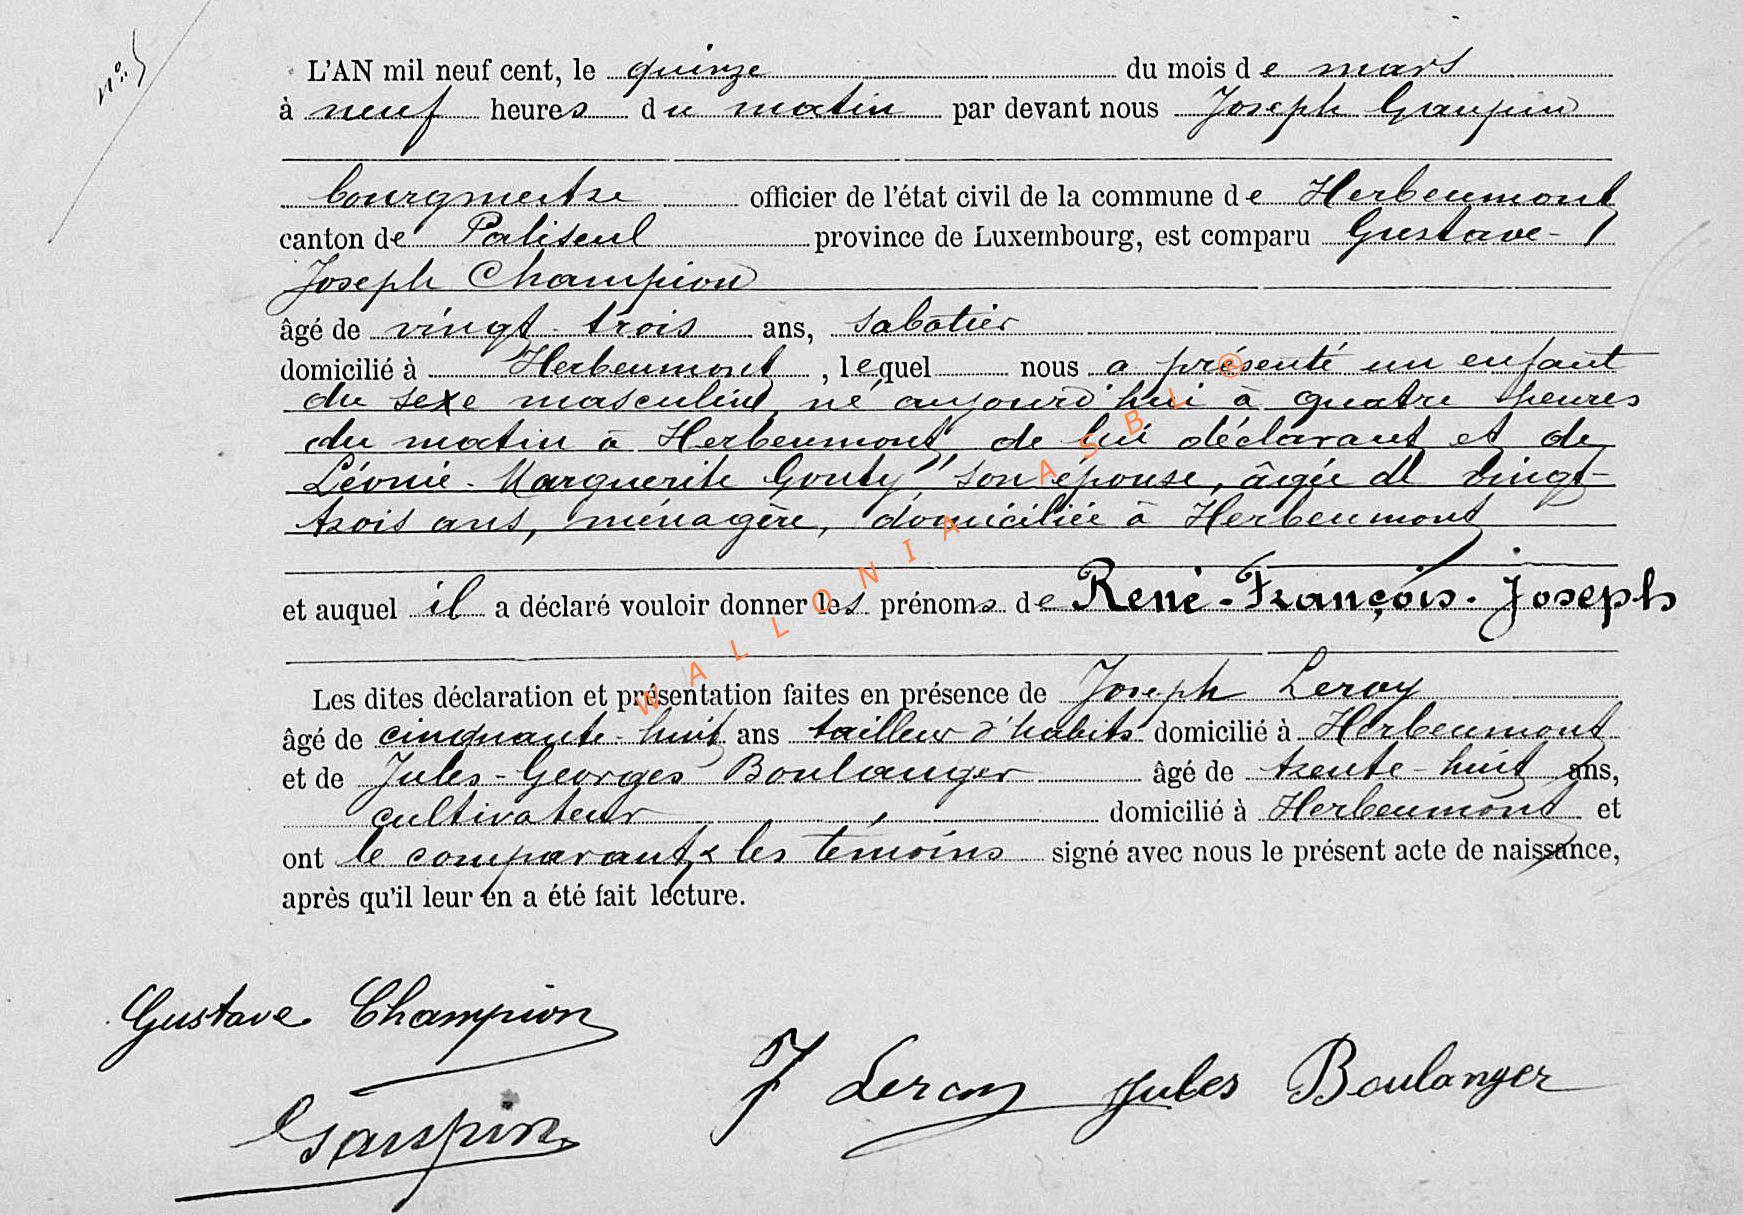 n°: 5
L'AN mil neuf cent, le quinze du mois de mars
à neuf heures du matin par devant nous Joseph Gaupin
bourgmestre officier de l'état civil de la commune de Herbeumont
canton de Paliseul province de Luxembourg, est comparu Gustave-
Joseph Champion
âgé de vingt-trois ans, sabotier
domicilié à Herbeumont, lequel nous a présenté un enfant
du sexe masculin, né aujourd'hui à quatre heures
du matin à Herbeumont, de lui déclarant et de
Léonie-Marguerite Gouty son épouse, âgée de vingt-
trois ans, ménagère, domiciliée à Herbeumont
et auquel il a déclaré vouloir donner les prénoms de René-François-Joseph
Les dites déclaration et présentation faites en présence de Joseph Leroy
âgé de cinquante-huit ans tailleur d'habits domicilié à Herbeumont
et de Jules-Georges Boulanger âgé de trente-huit ans,
cultivateur domicilié à Herbeumont et
ont le comparant & les témoins signé avec nous le présent acte de naissance,
après qu'il leur en a été fait lecture.
WALLONIA ASBL ®
Gustave Champion
J Leroy Jules Boulanger
Gaupin